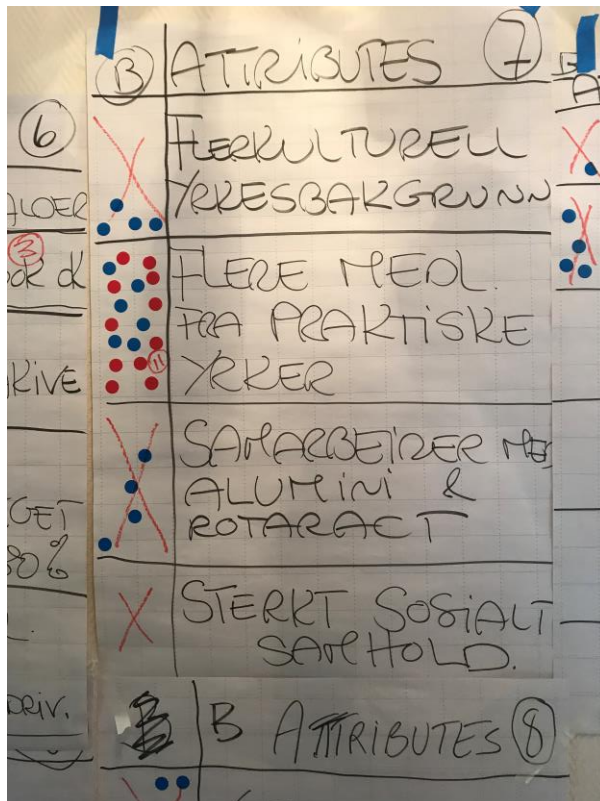 6
ALDER
3
OR d
KIVE
GET
80%
DRIV.
B ATTRIBUTES 7
FLERKULTURELL
YRKESBAKGRUNN
FLERE MEDL.
FRA PRAKTISKE
11 YRKER
SAMARBEIDER ME
ALUMINI &
ROTARACT
STERKT SOSIALT
SAMHOLD.
B ATTRIBUTES 8
B
A